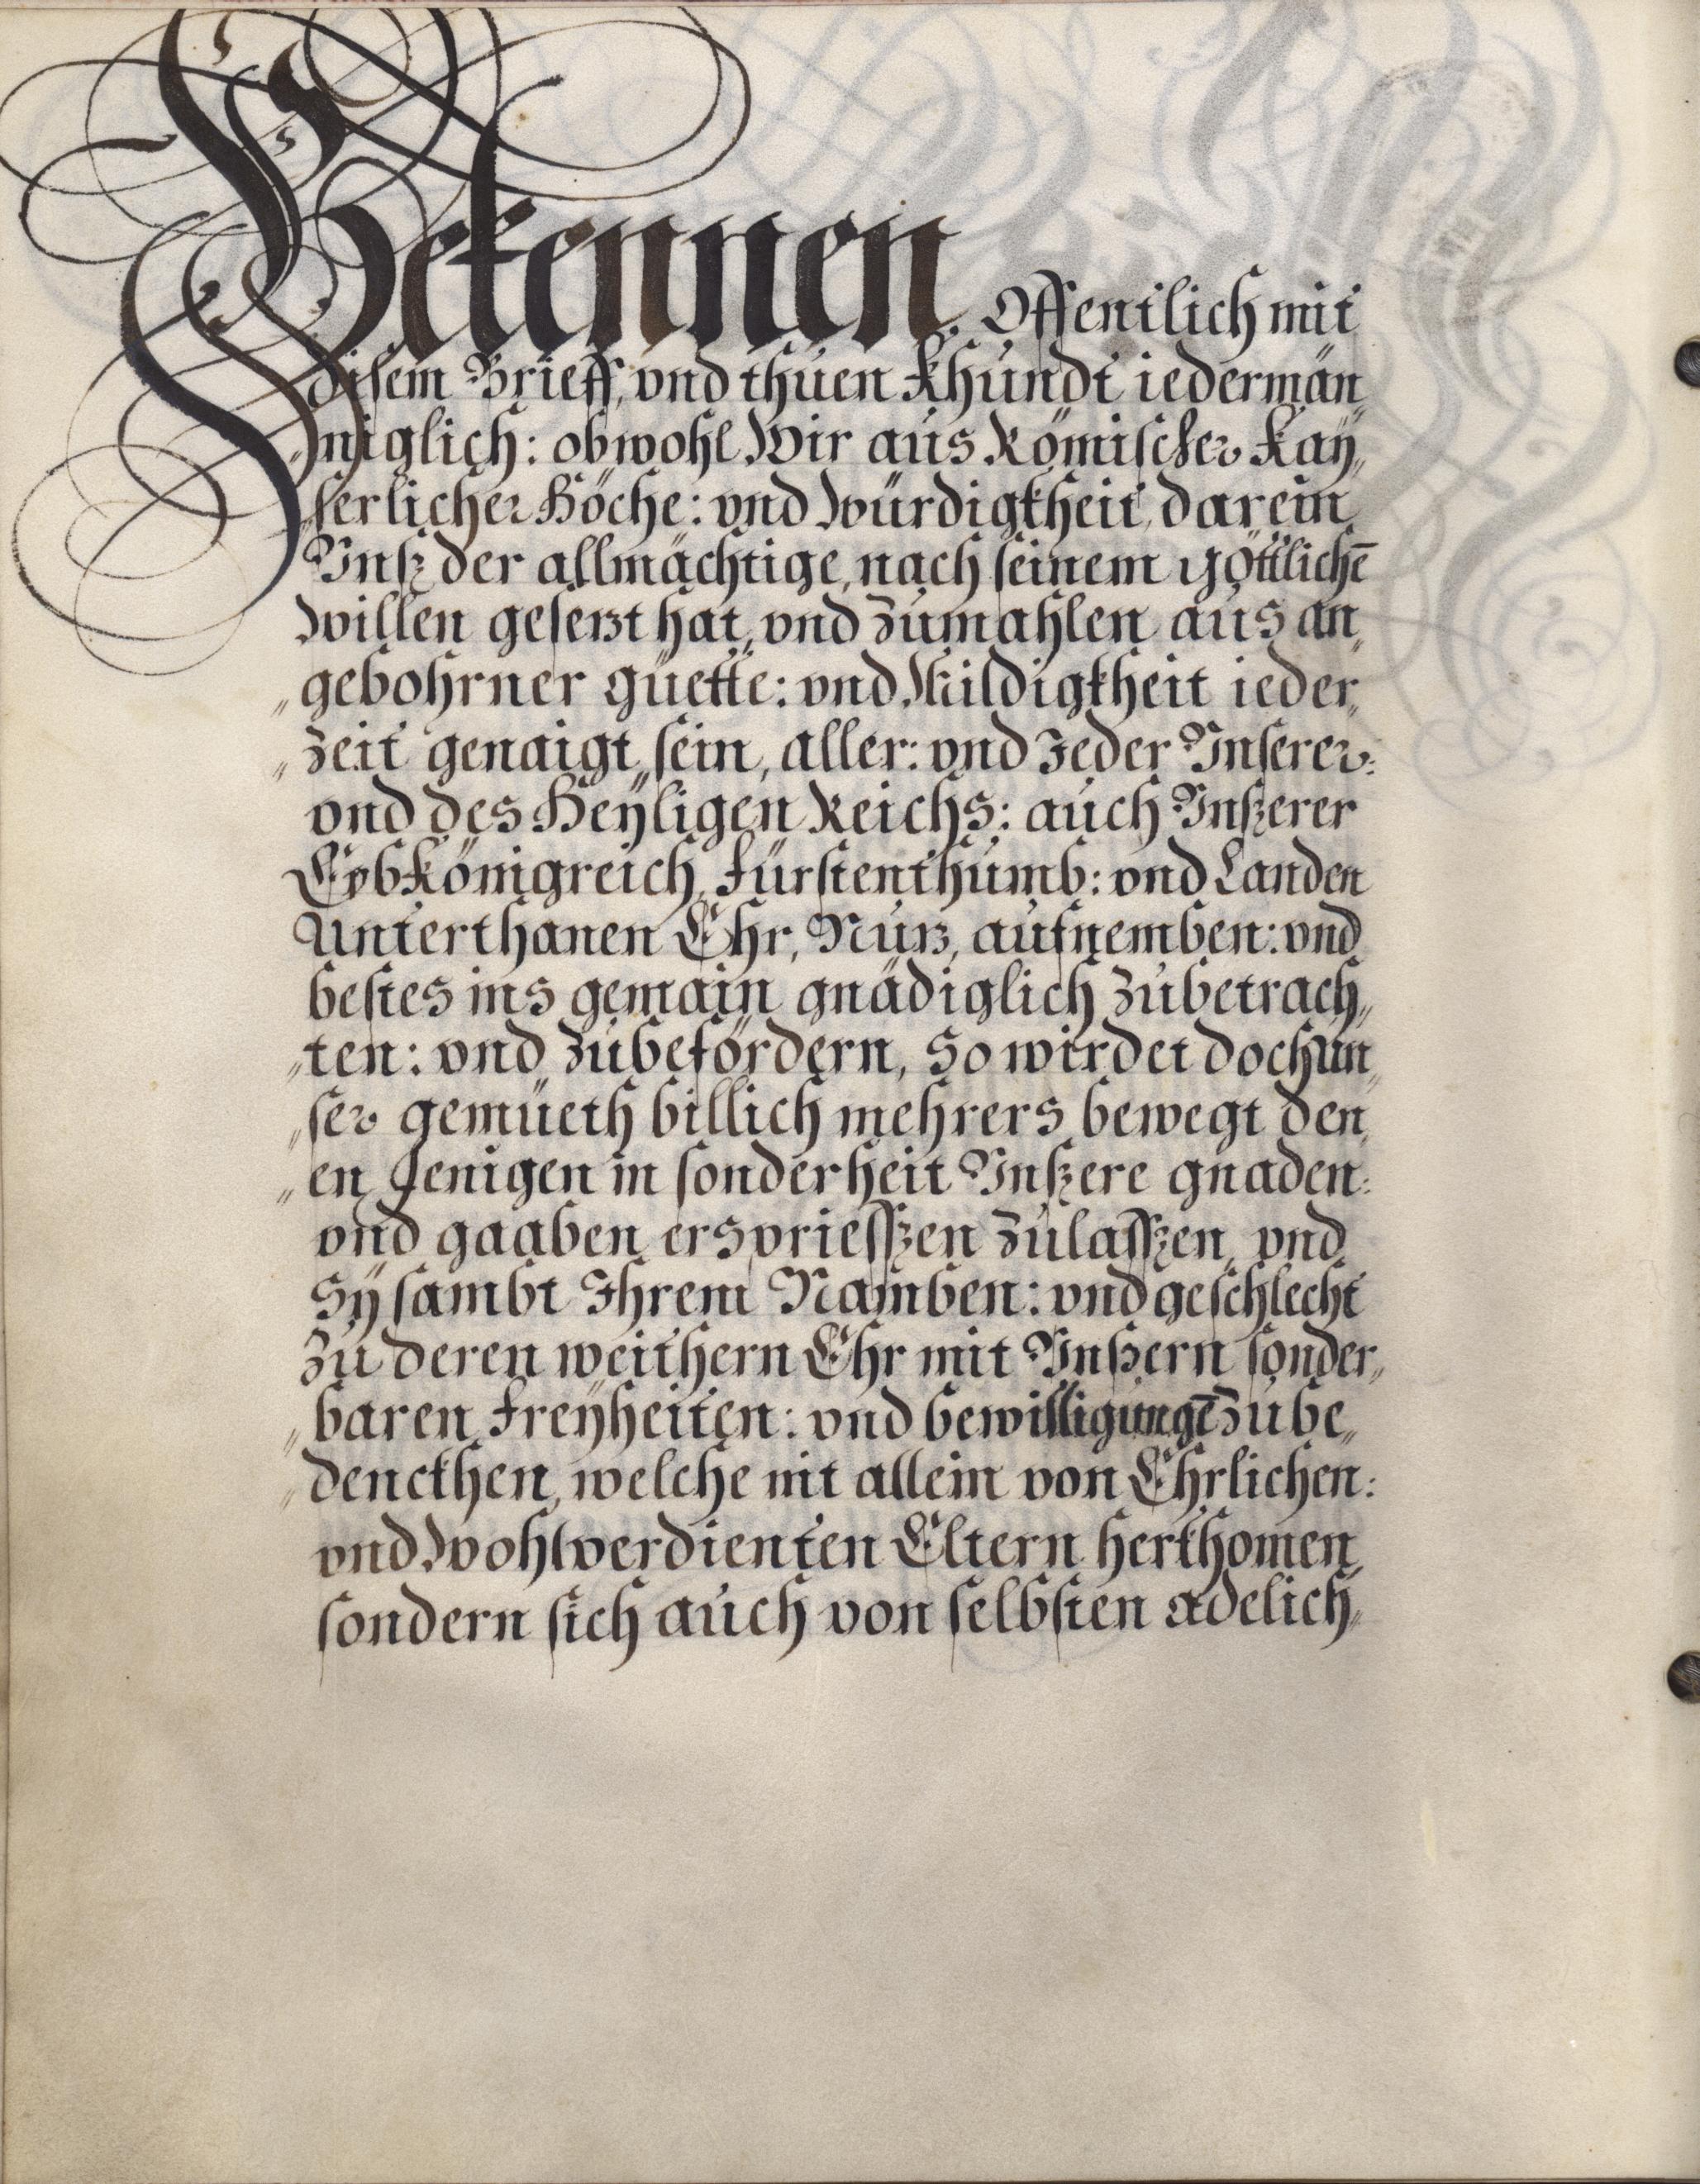 Bekennen. Offentlich mit
disem Brieff, vnd thuen Khundt iedermän„
„niglich: obwohl Wir aus Römischer Kaÿ„
„serlicher Höche: vnd Würdigkheit, darein
Vnsz der allmächtige, nach seinem göttlichē
Willen gesezt hat, vnd zumahlen aus an„
„gebohrner güette: vnd Mildigkheit ieder„
„zeit genaigt sein, aller: vnd Jeder Vnserer:
vnd des Heÿligen Reichs: auch Vnszerer
Erbkönigreich, Fürstenthumb: vnd Landen
Unterthanen Ehr, Nuz, aufnemben: vnd
bestes ins gemain gnädiglich zubetrach„
„ten: vnd zubefördern, So wirdet doch un„
„ser gemüeth billich mehrers bewegt den„
„en Jenigen in sonderheit Vnszere gnaden:
vnd gaaben erspriesszen zulasszen, vnd
Sÿ sambt Ihrem Namben: vnd geschlecht
zu deren weithern Ehr mit Vnszern sonder„
„baren Freÿheiten: vnd bewilligungē zube„
„denckhen, welche nit allein von Ehrlichen:
vnd Wohlverdienten Eltern herkhomen,
sondern sich auch von selbsten adelich„